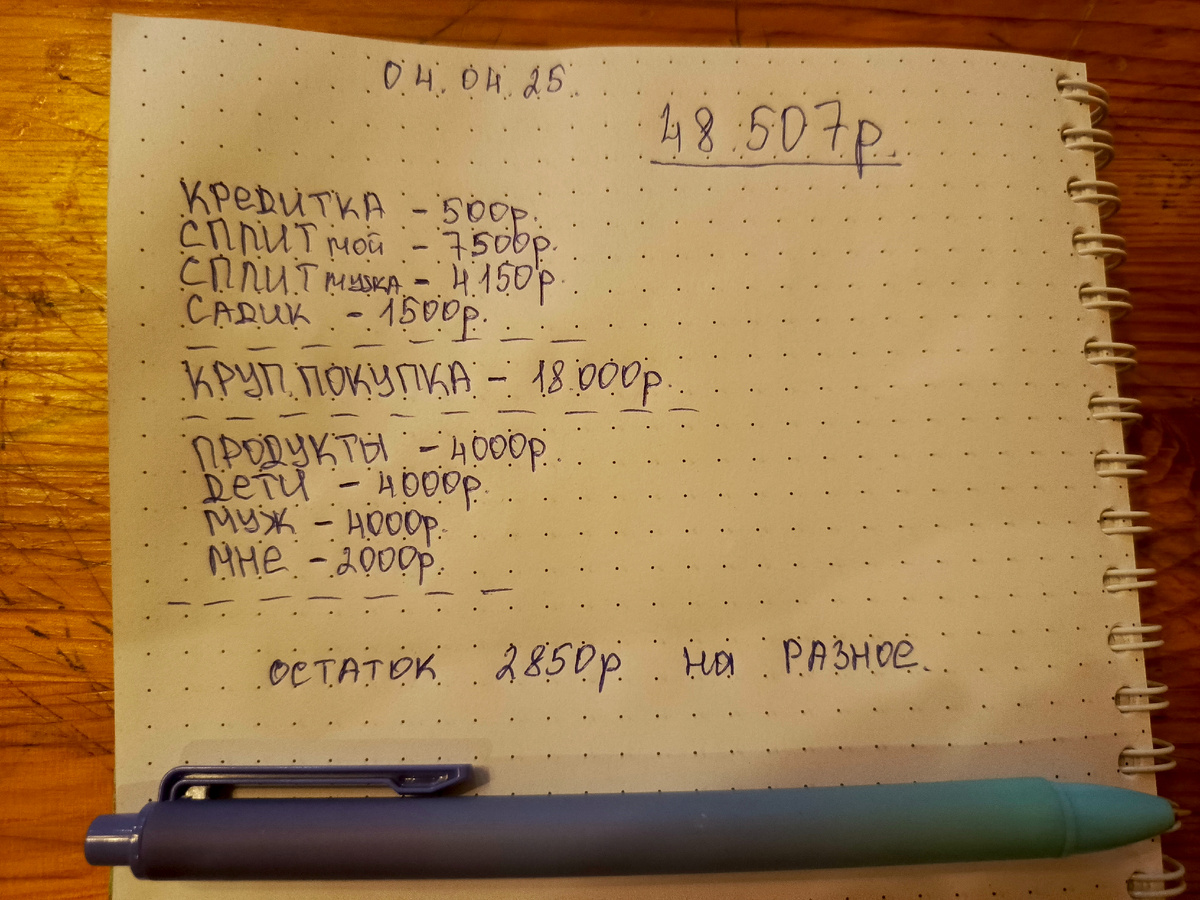 04.04.25
48.507р.
КРЕДИТКА - 500р.
СПЛИТ МОЙ - 7500р.
СПЛИТ МУЖА - 4150р
САДИК - 1500р.
КРУП. ПОКУПКА - 18.000р.
ПРОДУКТЫ - 4000р.
ДЕТИ - 4000р.
МУЖ - 4000р.
МНЕ - 2000р.
ОСТАТОК 2850р на РАЗНОЕ.